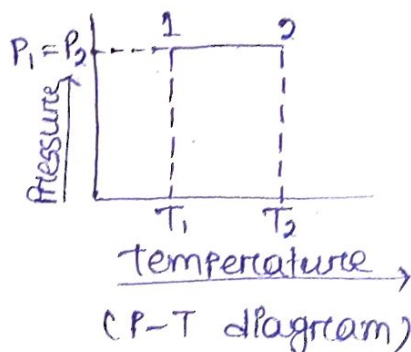 1 2
P₁ = P₂
Pressure
T₁ T₂
temperature
(P-T diagram)